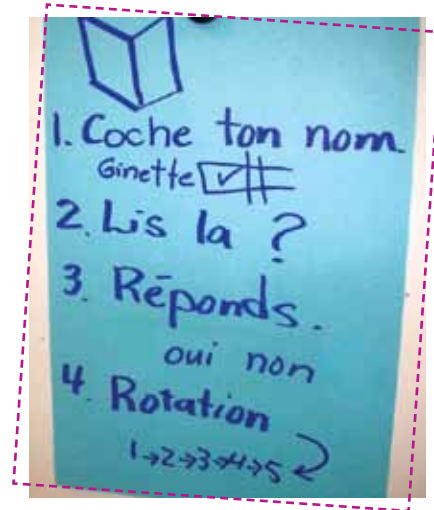 1. Coche ton nom.
Ginette ✓
2. Lis la ?
3. Réponds.
oui non
4. Rotation
1→2→3→4→5